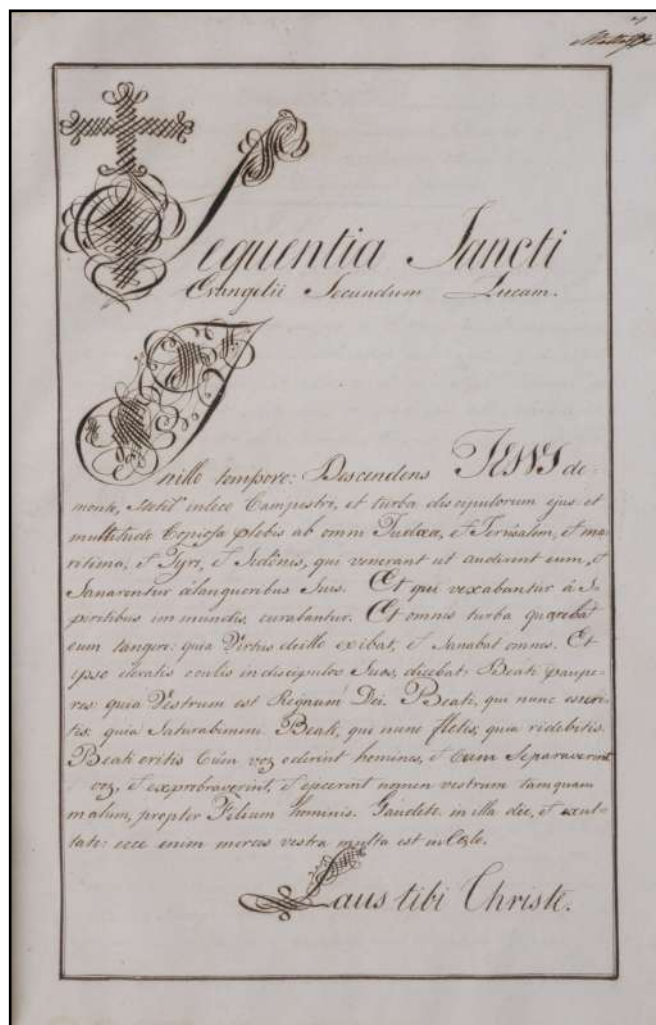 Sequentia Sancti
Evangelii Secundum Lucam.
In illo tempore: Descendens JESUS de
monte, Stetit inloco Campestri, et turba discipulorum ejus et
multitudo Copiosa plebis ab omni Judæa, et Jerusalem, et ma
ritima, et Tyri, et Sidónis, qui venerant ut audirent eum, et
Sanarentur álanguoribus Suis. Et qui vexabantur á S
piritibus inmundis, curabantur. Et omnis turba quærebat
eum tangere: quia Virtus deillo exibat, et Sanabat omnes. Et
ipse elevatis oculis indiscipulos Suos, dicebat: Beati paupe-
res: quia Vestrum est Regnum Dei. Beati, qui nunc esuri-
tis: quia Saturabimini. Beati, qui nunc fletis, quia ridebitis.
Beati eritis Cúm vos oderint homines, et Cum Separaverint
vos, et exprobraverint, et ejecerint nomen vestrum tamquam
malum, propter Filium hominis. Gaudete in illa die, et exul-
tate: ecce enim merces vestra multa est in Cœlo.
Laus tibi Christe.